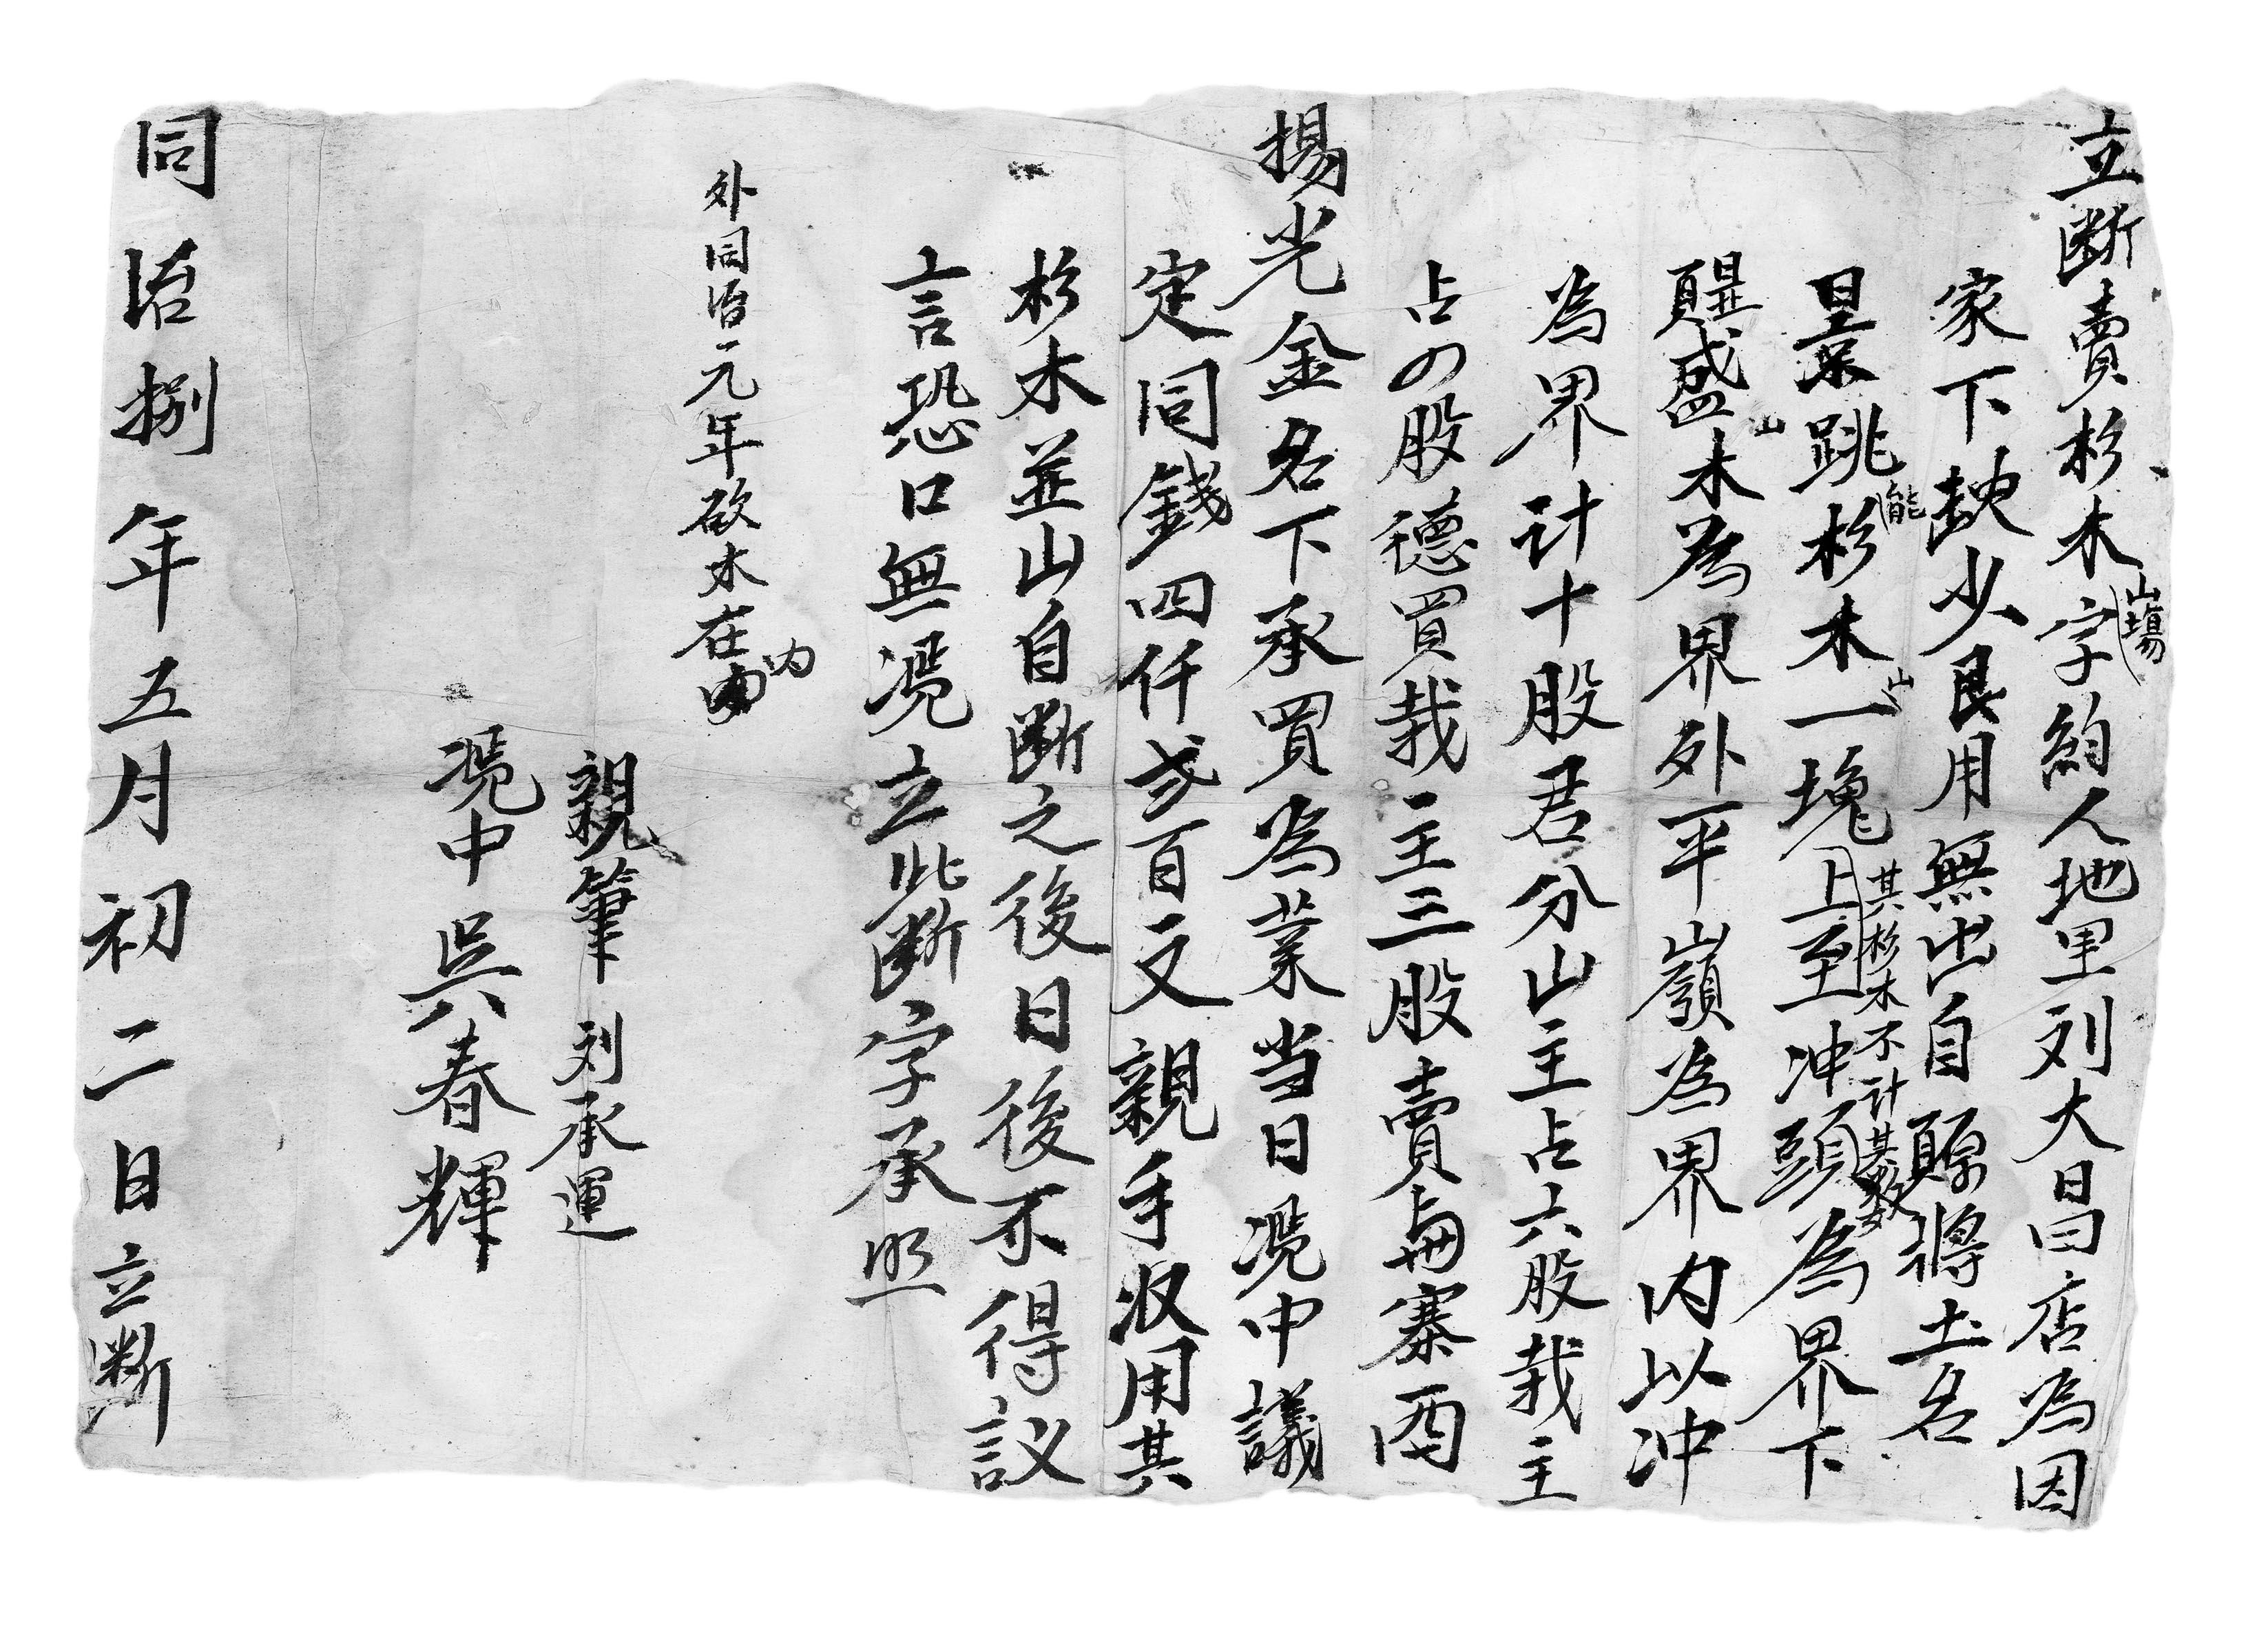 立斷賣杉木山塲字約人地里刘大昌店為因
家下缺少艮用無出自愿將土名
景跳能杉木山一塊其杉木不计其数上至冲頭為界下
盛山木為界外平嶺為界内以冲
為界计十股君分山主占六股栽主
占四股德買栽主三股賣與寨酉
揚光金名下承買為業当日凴中議
定同錢四仟弍百文親手収用其
杉木並山自断之後日後不得議
言恐口無凴立此断字承照
外同治元年砍木在内
親筆 刘承運
凴中 吳春輝
同治捌年五月初二日立斷